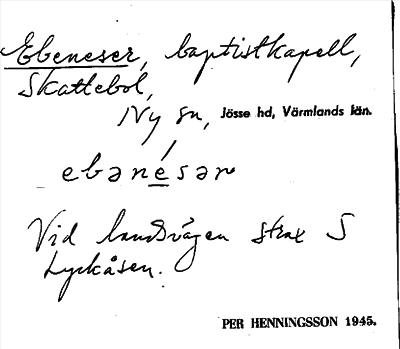 Ebeneser, baptistkapell,
Skattebol,
Ny sn, Jösse hd, Värmlands län.
ebənésər
Vid landsvägen strax S
Lyckåsen.
PER HENNINGSSON 1945.